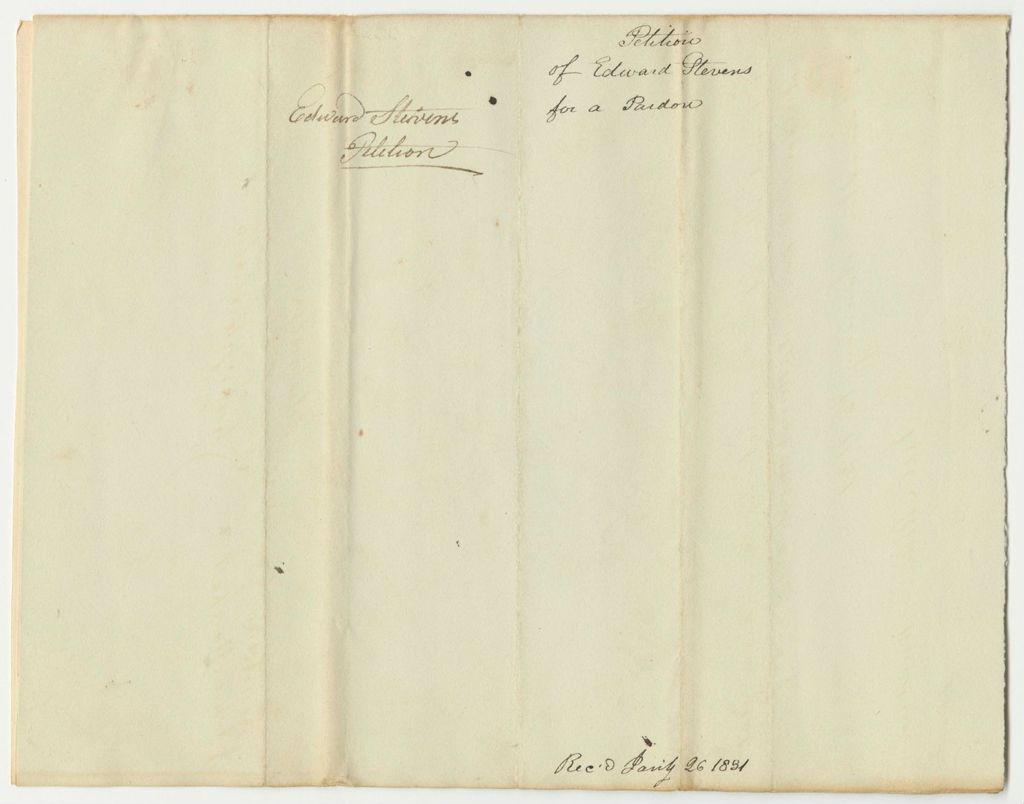 Edward Stevens
Petition
Petition
of Edward Stevens
for a Pardon
Rec'd Jan'y 26 1831